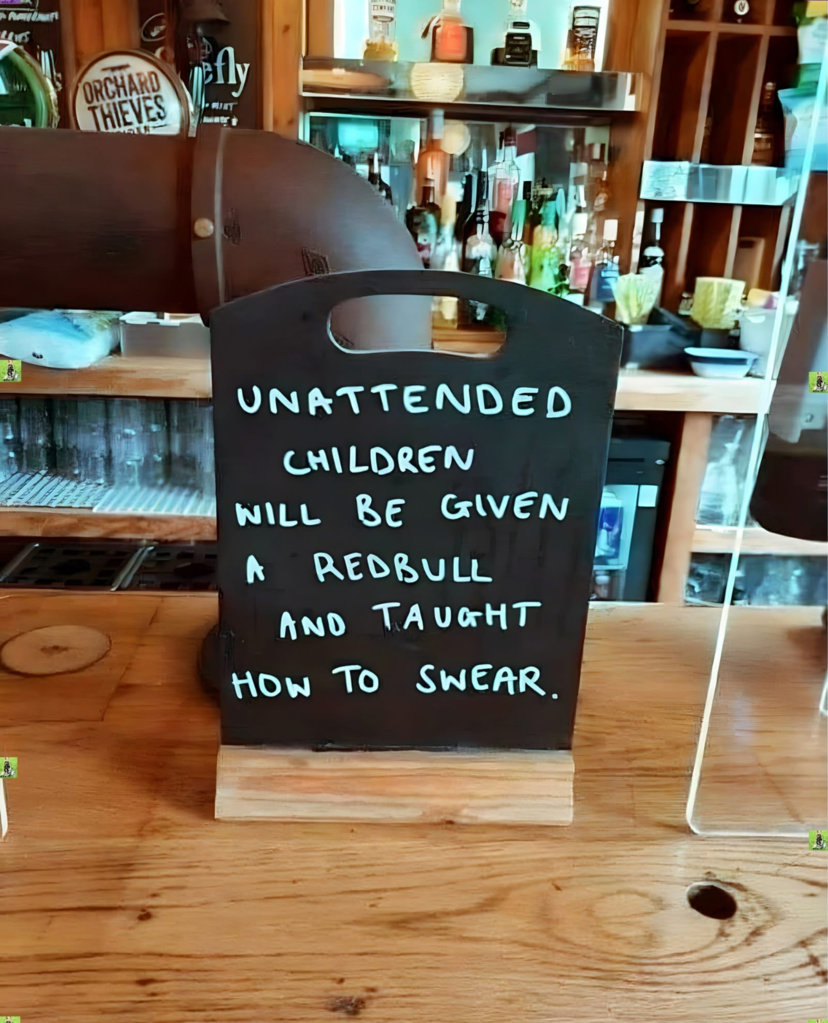 ORCHARD
THIEVES
efly
UNATTENDED
CHILDREN
WILL BE GIVEN
A REDBULL
AND TAUGHT
HOW TO SWEAR.